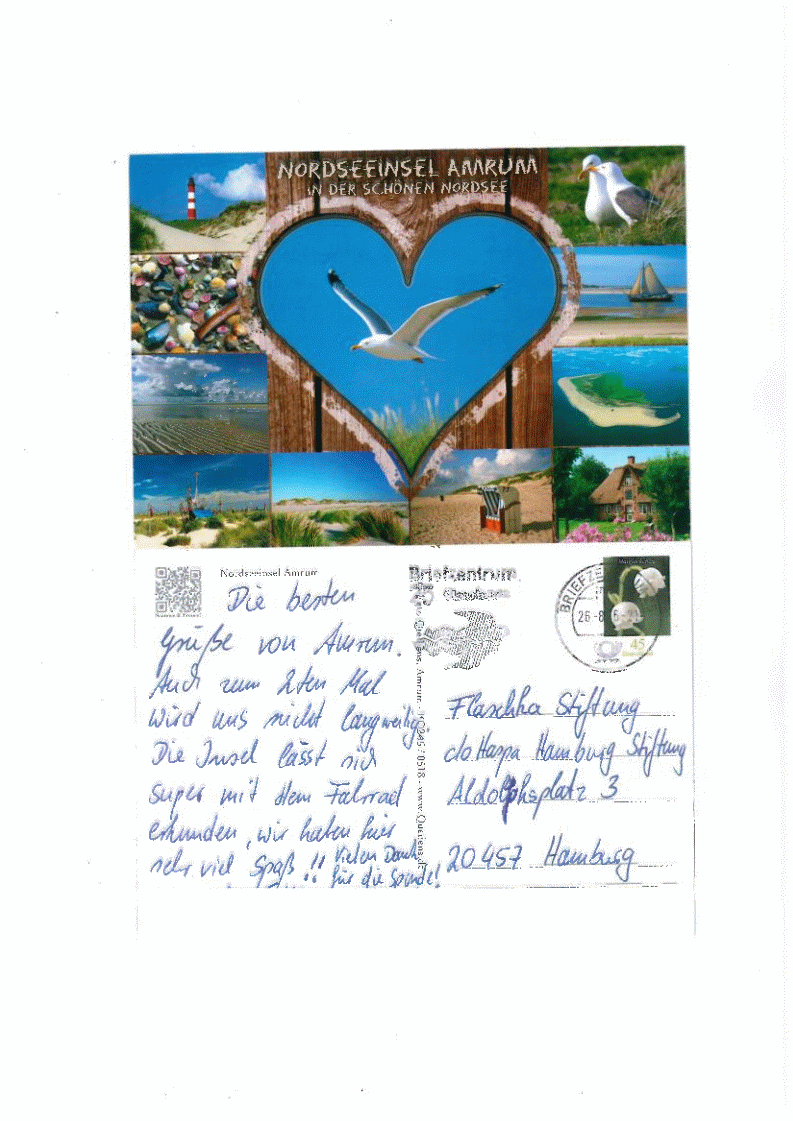 NORDSEEINSEL AMRUM
IN DER SCHÖNEN NORDSEE
Nordseeinsel Amrum
Die besten
Grüße von Amrum.
Auch zum 2ten Mal
wird uns nicht langweilig
Die Insel lässt sich
super mit dem Fahrrad
erkunden, wir haben hier
sehr viel Spaß !! Vielen Dank
für die Spende!
Briefzentrum
45
Flaschka Stiftung
c/o Haspa Hamburg Stiftung
Aldolphsplatz 3
20457 Hamburg